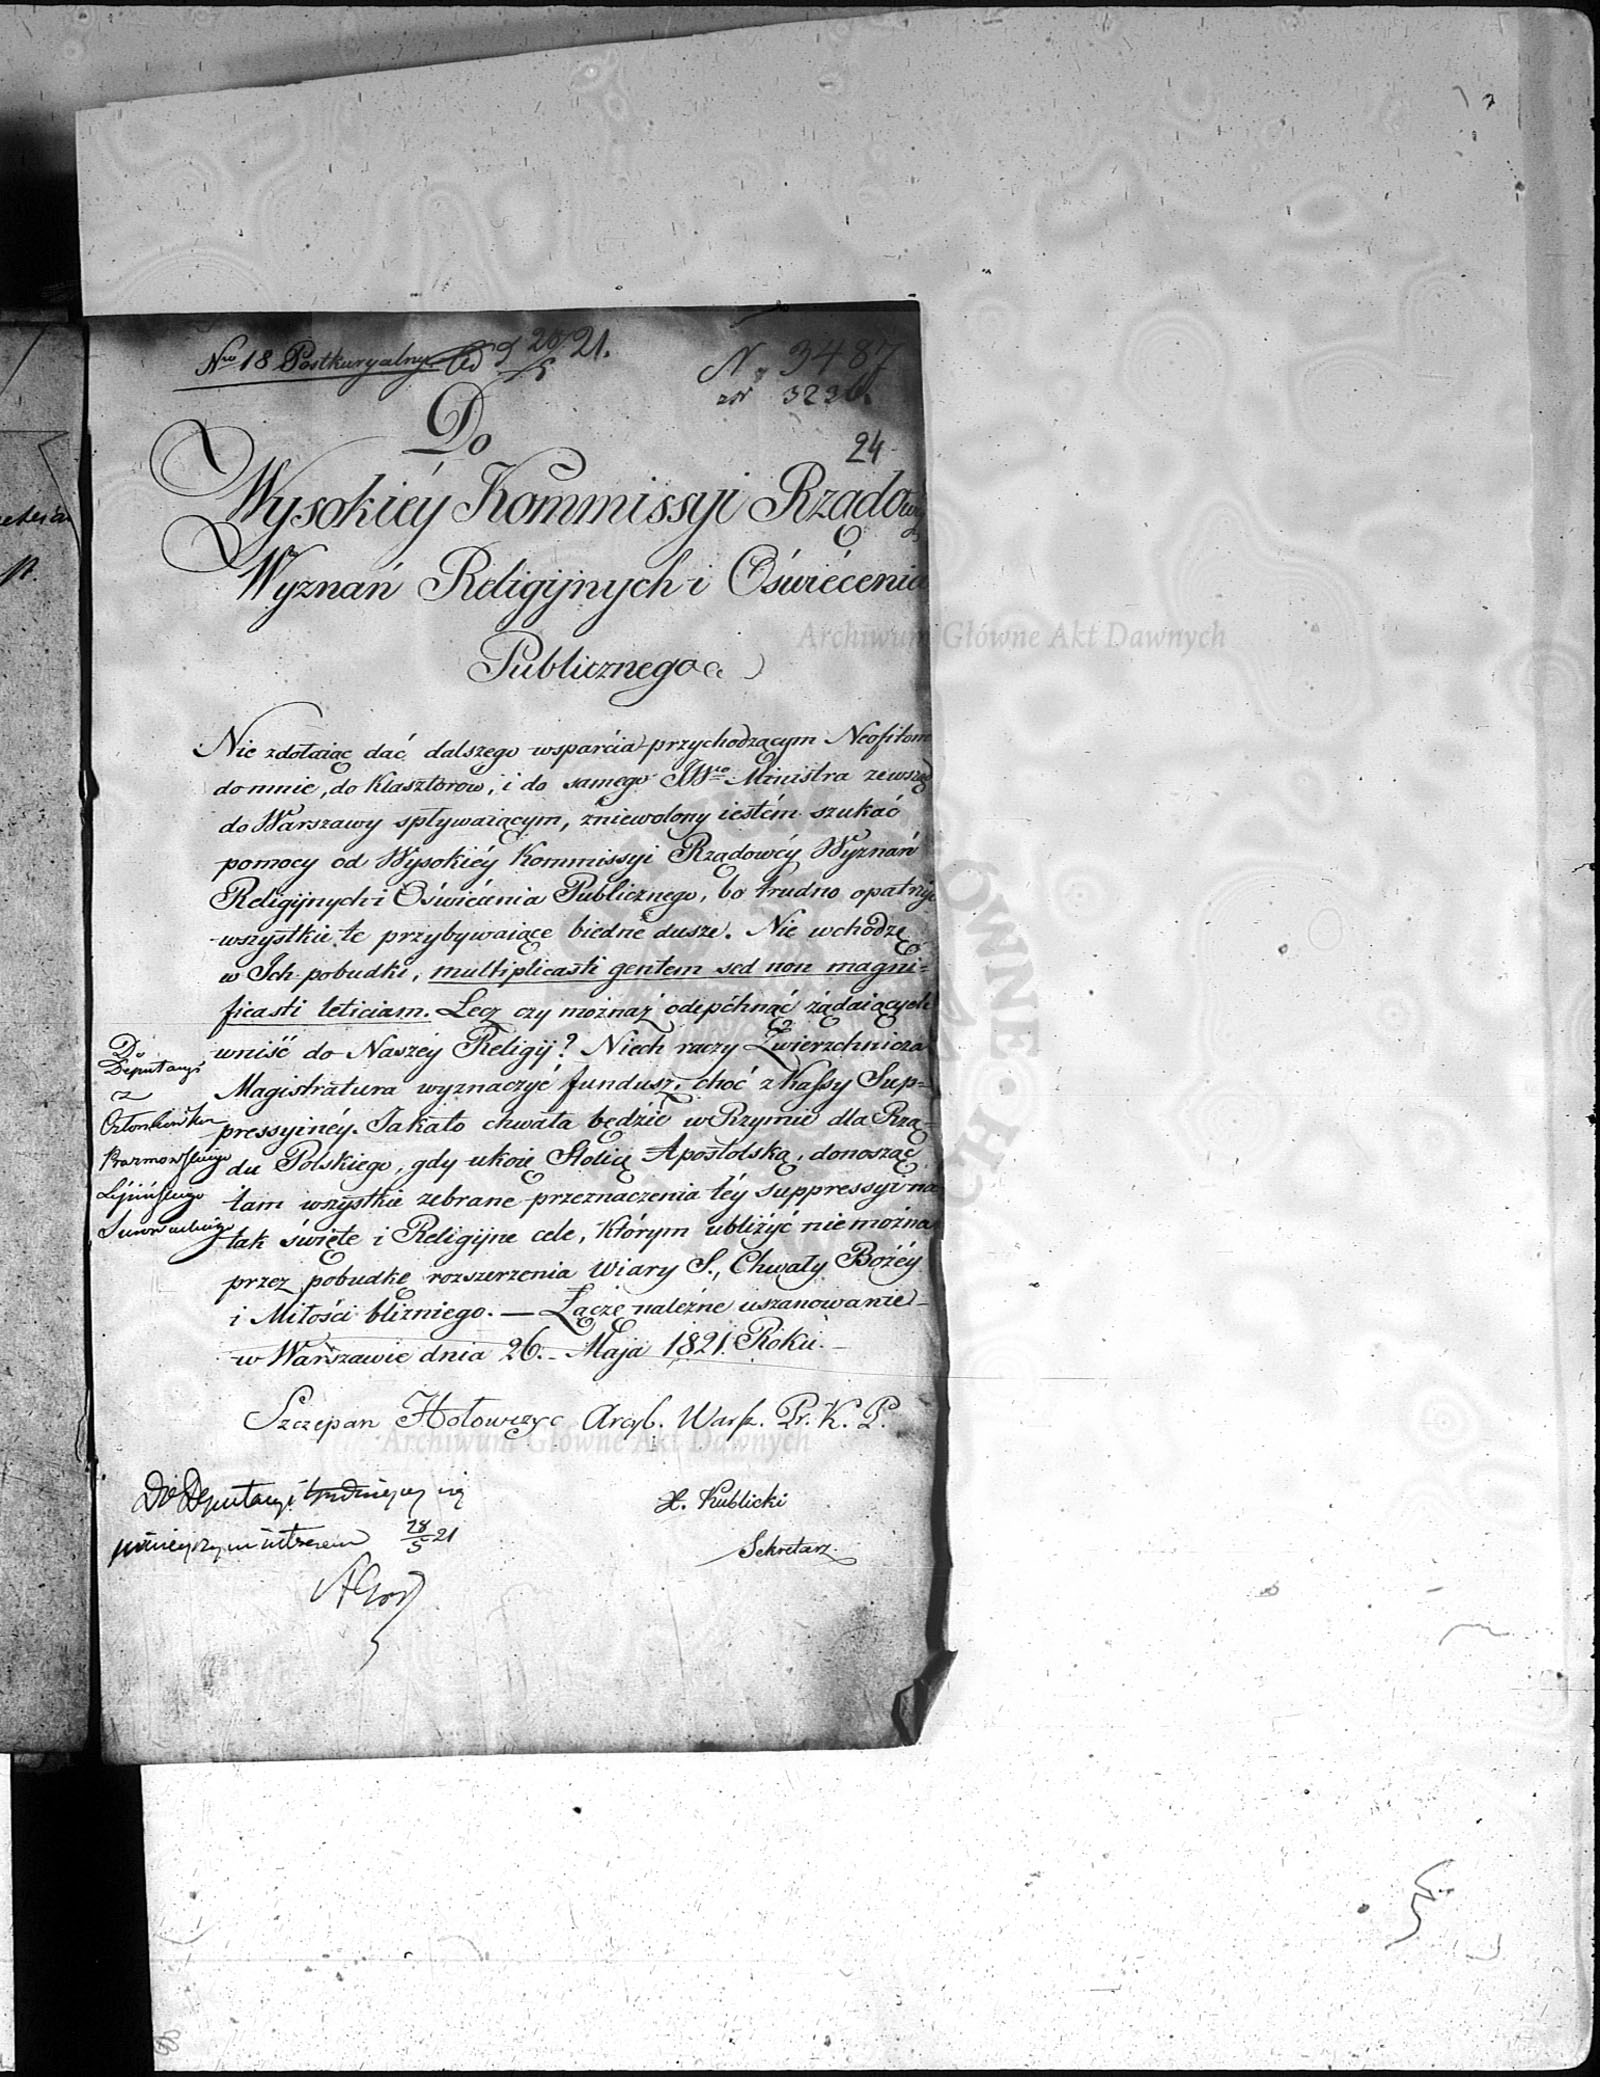 Nro 18 Postkuryalny
28/5 21.
N. 3487
24
Do
Wysokiéy Kommissyi Rządowéy
Wyznań Religiynych i Oświécenia
Publicznego
Nie zdołaiąc dać dalszego wsparcia przychodzącym Neofitom
do mnie, do Klasztorów, i do samego JWgo Ministra zewsząd
do Warszawy spływaiącym, zniewolony iestém szukać
pomocy od Wysokiéy Kommissyi Rządowéy Wyznań
Religijnych i Oświécenia Publicznego, bo trudno opatrzyć
wszystkie te przybywaiące biedne dusze. Nie wchodzę
w Ich pobudki, multiplicasti gentem sed non magni=
ficasti leticiam. Lecz czy możnaż odepchnąć żądaiących
wniść do Naszéy Religij? Niech raczy Zwierzchnicza
Magistratura wyznaczyć fundusz, choć z Kassy Sup=
pressyinéy. Jakato chwała będzie w Rzymie dla Rzą=
du Polskiego, gdy ukoię Stolicę Apostolską, donosząc
tam wszystkie zebrane przeznaczenia téy suppressyi na
tak święte i Religijne cele, którym ubliżyć nie można
przez pobudkę rozszerzenia Wiary S., Chwały Bożéy
i Miłości bliźniego. — Łączę należne uszanowanie
w Warszawie dnia 26. Maja 1821. Roku.
Szczepan Hołowczyc Arcyb. Warsz. Pr. K. P.
X. Kublicki
Sekretarz.
Do
Deputacyi
z
Członków
Prazmowskiego
Lipińskiego
Surowieckiego
Do Deputacyi trudniącej się
niniejszym
28/5 21
Archiwum Główne Akt Dawnych
Archiwum Główne Akt Dawnych